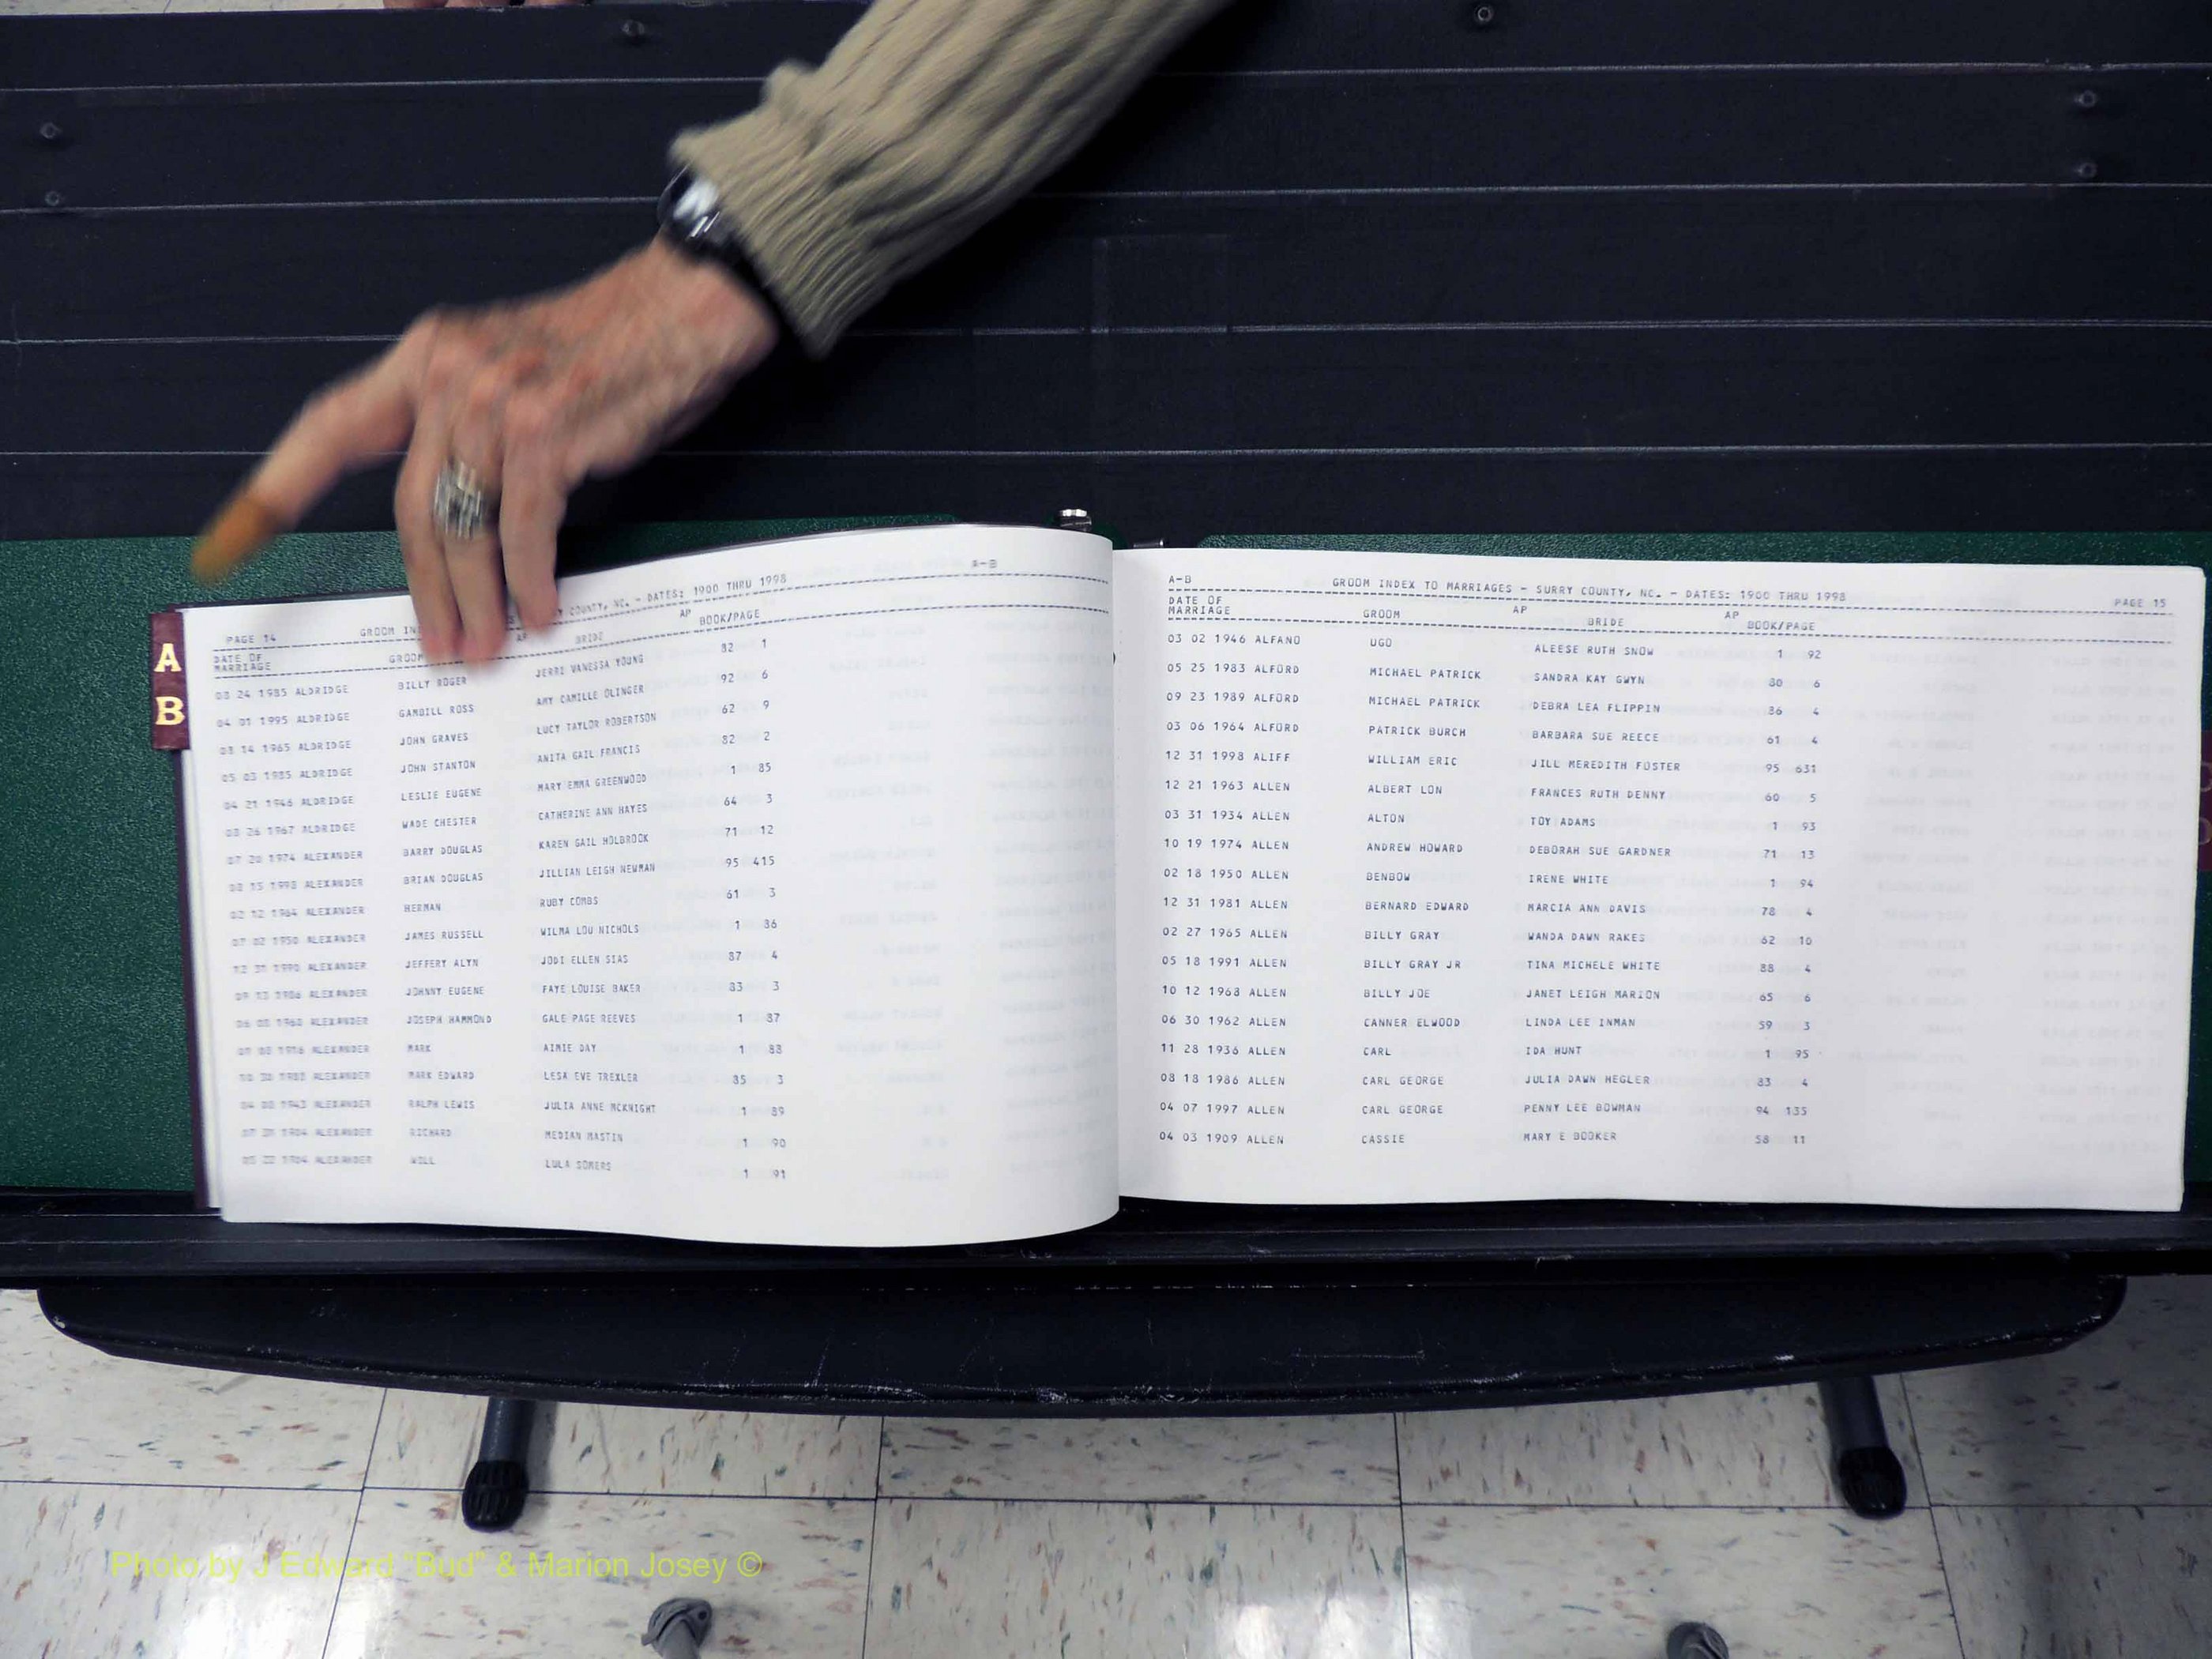 A
B
PAGE 14 GROOM IN Y COUNTY, NC. - DATES: 1900 THRU 1998 A-B
DATE OF
MARRIAGE GROOM AP BRIDE AP BOOK/PAGE
03 24 1985 ALDRIDGE BILLY ROGER JERRI VANESSA YOUNG 82 1
04 01 1995 ALDRIDGE GAMBILL ROSS AMY CAMILLE OLINGER 92 6
03 14 1965 ALDRIDGE JOHN GRAVES LUCY TAYLOR ROBERTSON 62 9
05 03 1985 ALDRIDGE JOHN STANTON ANITA GAIL FRANCIS 82 2
04 21 1946 ALDRIDGE LESLIE EUGENE MARY EMMA GREENWOOD 1 85
03 26 1967 ALDRIDGE WADE CHESTER CATHERINE ANN HAYES 64 3
07 20 1974 ALEXANDER BARRY DOUGLAS KAREN GAIL HOLBROOK 71 12
1998 ALEXANDER BRIAN DOUGLAS JILLIAN LEIGH NEWMAN 95 415
02 12 1964 ALEXANDER HERMAN RUBY COMBS 61 3
07 02 1950 ALEXANDER JAMES RUSSELL WILMA LOU NICHOLS 1 86
1990 ALEXANDER JEFFERY ALYN JODI ELLEN SIAS 87 4
09 13 1986 ALEXANDER JOHNNY EUGENE FAYE LOUISE BAKER 83 3
ALEXANDER JOSEPH HAMMOND GALE PAGE REEVES 1 87
ALEXANDER MARK AIMIE DAY 1 88
ALEXANDER MARK EDWARD LESA EVE TREXLER 85 3
ALEXANDER RALPH LEWIS JULIA ANNE MCKNIGHT 1 89
ALEXANDER RICHARD MEDIAN MASTIN 1 90
ALEXANDER WILL LULA SOMERS 1 91
A-B GROOM INDEX TO MARRIAGES - SURRY COUNTY, NC. - DATES: 1900 THRU 1998 PAGE 15
DATE OF
MARRIAGE GROOM AP BRIDE AP BOOK/PAGE
03 02 1946 ALFANO UGO ALEESE RUTH SNOW 1 92
05 25 1983 ALFORD MICHAEL PATRICK SANDRA KAY GWYN 80 6
09 23 1989 ALFORD MICHAEL PATRICK DEBRA LEA FLIPPIN 86 4
03 06 1964 ALFORD PATRICK BURCH BARBARA SUE REECE 61 4
12 31 1998 ALIFF WILLIAM ERIC JILL MEREDITH FOSTER 95 631
12 21 1963 ALLEN ALBERT LON FRANCES RUTH DENNY 60 5
03 31 1934 ALLEN ALTON TOY ADAMS 1 93
10 19 1974 ALLEN ANDREW HOWARD DEBORAH SUE GARDNER 71 13
02 18 1950 ALLEN BENBOW IRENE WHITE 1 94
12 31 1981 ALLEN BERNARD EDWARD MARCIA ANN DAVIS 78 4
02 27 1965 ALLEN BILLY GRAY WANDA DAWN RAKES 62 10
05 18 1991 ALLEN BILLY GRAY JR TINA MICHELE WHITE 88 4
10 12 1968 ALLEN BILLY JOE JANET LEIGH MARION 65 6
06 30 1962 ALLEN CANNER ELWOOD LINDA LEE INMAN 59 3
11 28 1936 ALLEN CARL IDA HUNT 1 95
08 18 1986 ALLEN CARL GEORGE JULIA DAWN HEGLER 83 4
04 07 1997 ALLEN CARL GEORGE PENNY LEE BOWMAN 94 135
04 03 1909 ALLEN CASSIE MARY E BOOKER 58 11
Photo by J Edward "Bud" & Marion Josey ©